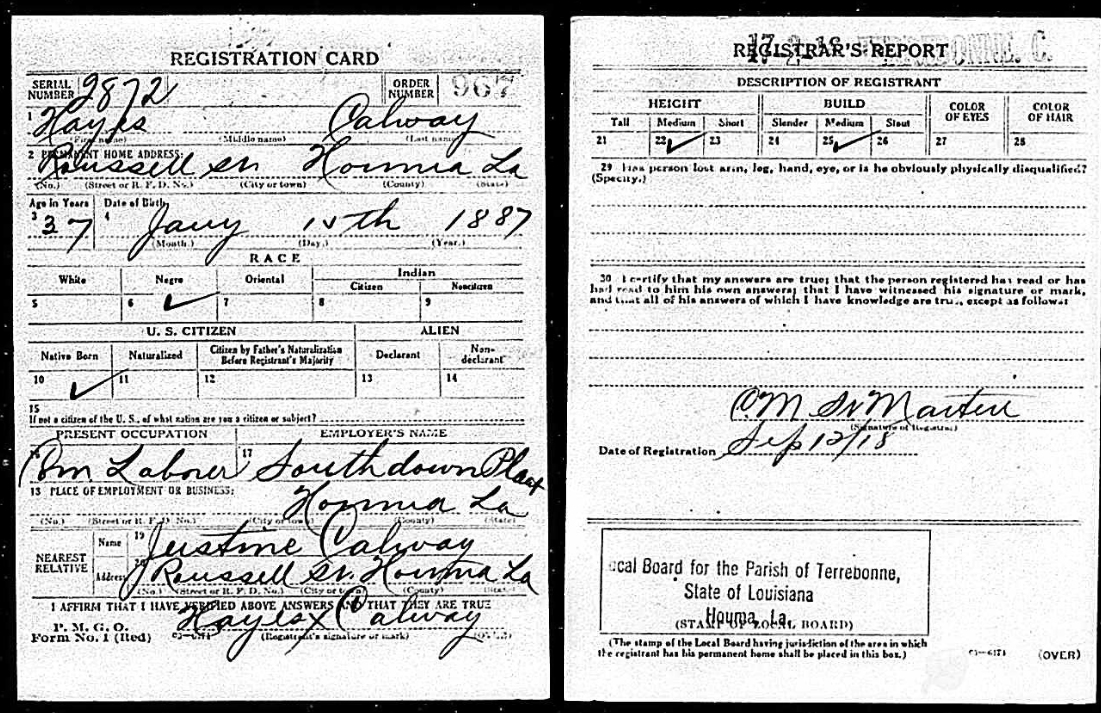 REGISTRATION CARD
SERIAL NUMBER 2872 ORDER NUMBER 967
1 Hayes Calway
(First name) (Middle name) (Last name)
2 PERMANENT HOME ADDRESS:
Roussell St. Houma La
(No.) (Street or R. F. D. No.) (City or town) (County) (State)
Age in Years Date of Birth
3 37 4 Jany 15th 1887
(Month.) (Day.) (Year.)
RACE
White Negro Oriental Indian
Citizen Noncitizen
5 6 ✓ 7 8 9
U. S. CITIZEN ALIEN
Native Born Naturalized Citizen by Father's Naturalization Before Registrant's Majority Declarant Non-declarant
10 ✓ 11 12 13 14
15
If not a citizen of the U. S., of what nation are you a citizen or subject?
PRESENT OCCUPATION EMPLOYER'S NAME
Laborer 17 Southdown
18 PLACE OF EMPLOYMENT OR BUSINESS:
Houma La
(No.) (Street or R. F. D. No.) (City or town) (County) (State)
NEAREST RELATIVE
Name 19 Justine Calway
Address 20 Roussell St. Houma La
(No.) (Street or R. F. D. No.) (City or town) (County) (State)
I AFFIRM THAT I HAVE VERIFIED ABOVE ANSWERS AND THAT THEY ARE TRUE
P. M. G. O.
Form No. 1 (Red) Hayes x Calway
(Registrant's signature or mark) (OVER)
REGISTRAR'S REPORT
DESCRIPTION OF REGISTRANT
HEIGHT BUILD COLOR OF EYES COLOR OF HAIR
Tall Medium Short Slender Medium Stout
21 22 ✓ 23 24 25 ✓ 26 27 28
29 Has person lost arm, leg, hand, eye, or is he obviously physically disqualified?
(Specify.)
30 I certify that my answers are true; that the person registered has read or has
had read to him his own answers; that I have witnessed his signature or mark,
and that all of his answers of which I have knowledge are true, except as follows:
(Signature of Registrar)
Date of Registration Sep 12/18
Local Board for the Parish of Terrebonne,
State of Louisiana
Houma, La.
(STAMP OF LOCAL BOARD)
(The stamp of the Local Board having jurisdiction of the area in which
the registrant has his permanent home shall be placed in this box.)
03—6171 (OVER)